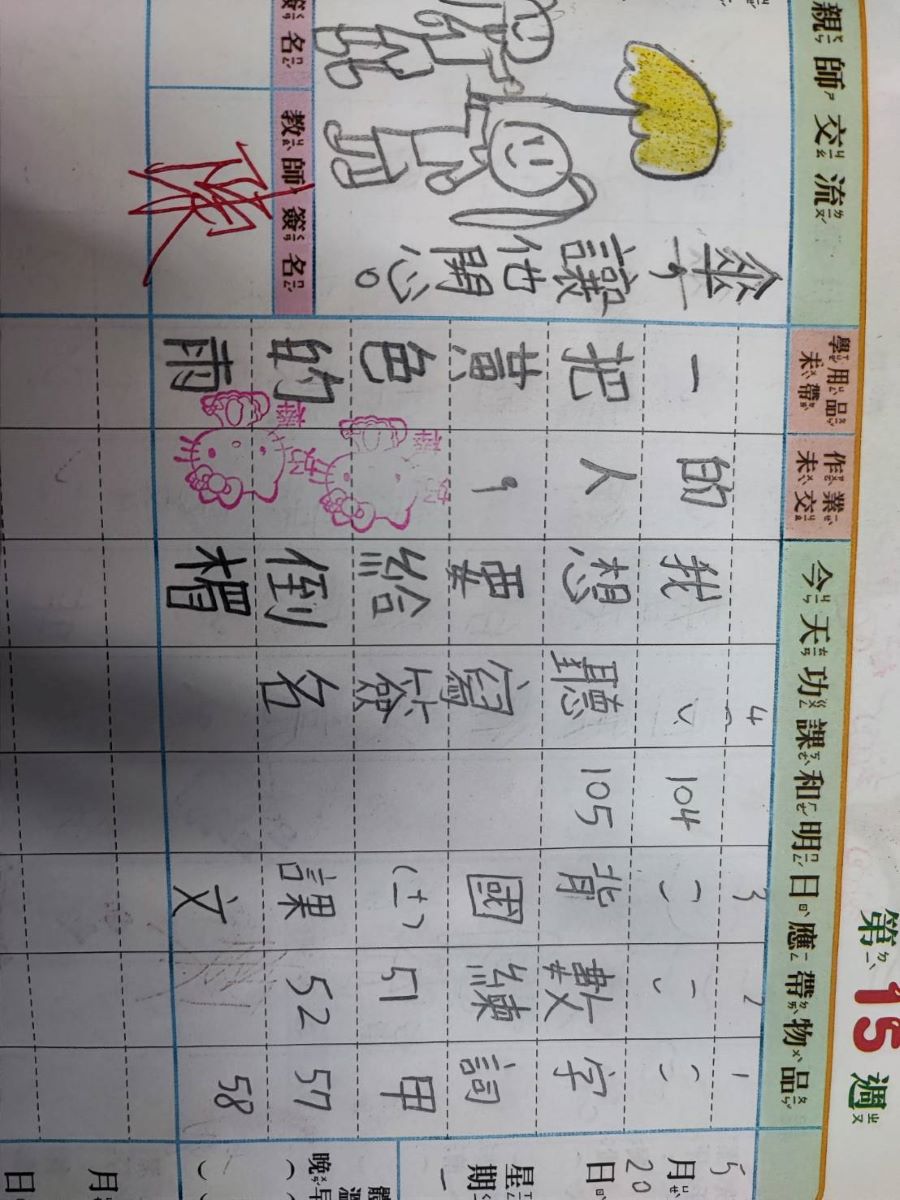 第15週
親師交流
學用品未帶
作業未交
今天功課和明日應帶物品
5月20日
星期一
1 字詞甲 57 58
2 數練 51 52
3 背國(十一)課文
104 105
4 聽寫簽名
我想要給倒楣
的人，
一把黃色的雨
傘，讓他開心。
簽名
教師簽名
陳
棒
棒
月
日